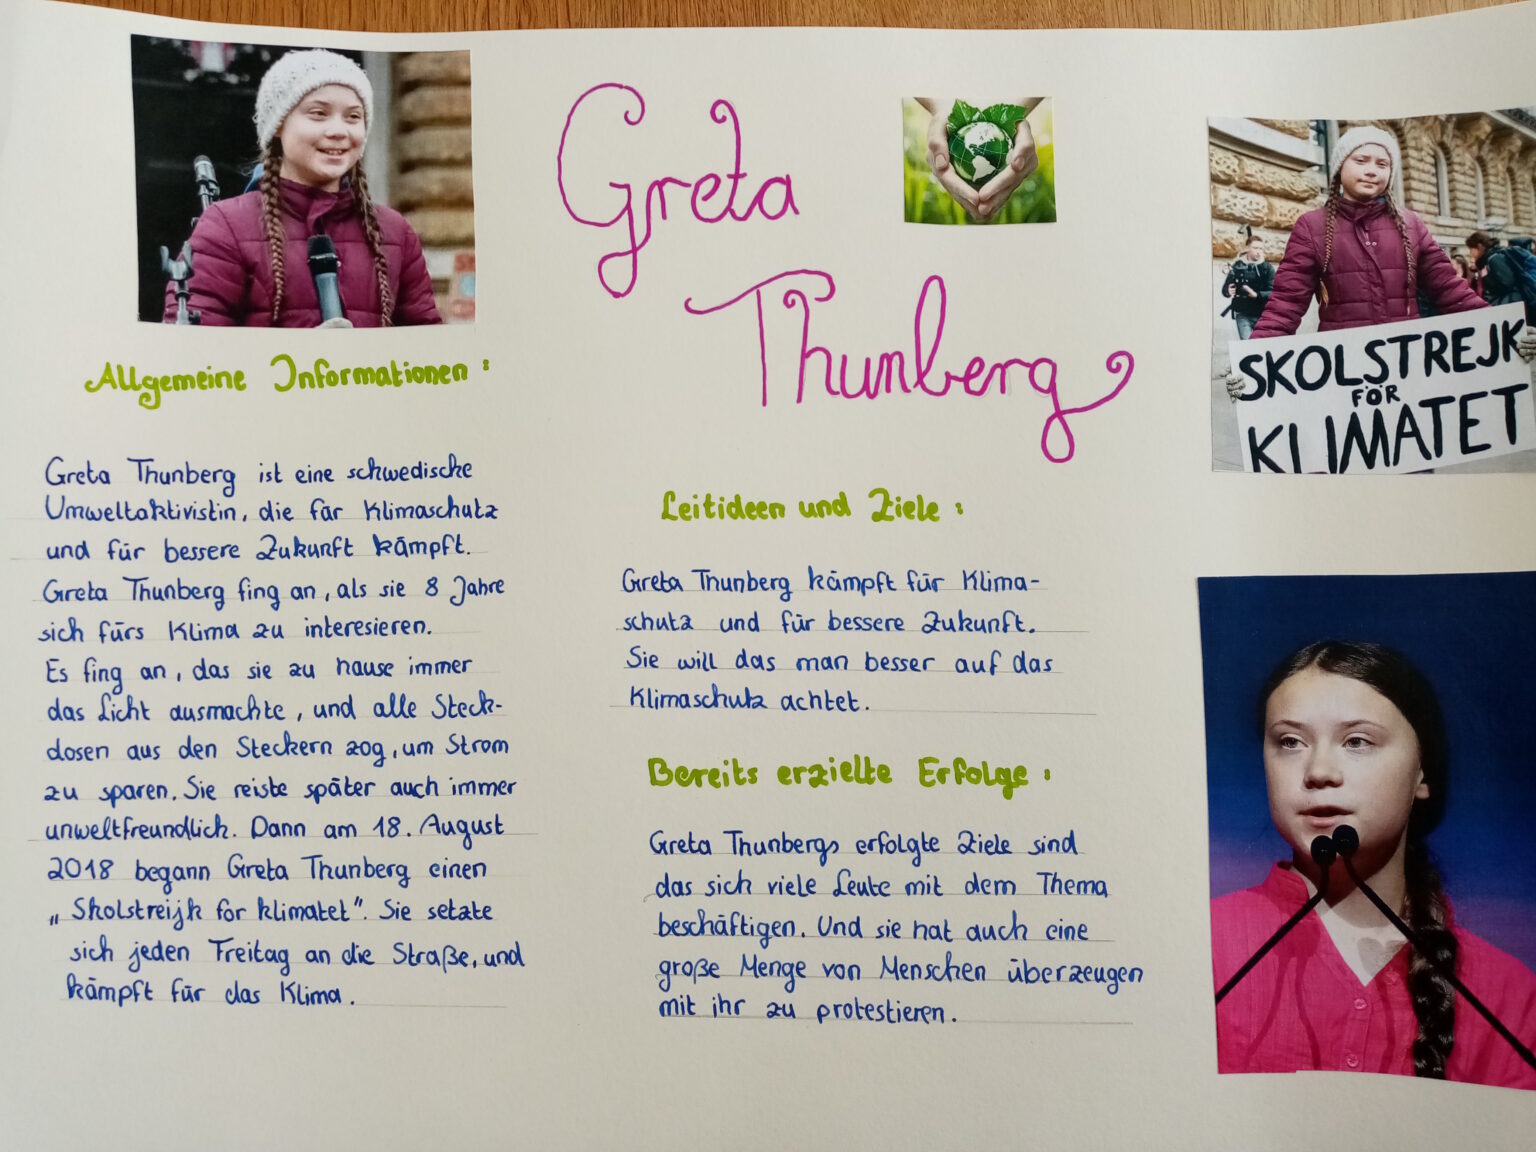 Greta
Thunberg
SKOLSTREJK
FÖR
KLIMATET
Allgemeine Informationen:
Greta Thunberg ist eine schwedische
Umweltaktivistin, die für Klimaschutz
und für bessere Zukunft kämpft.
Greta Thunberg fing an, als sie 8 Jahre
sich fürs Klima zu interesieren.
Es fing an, das sie zu hause immer
das Licht ausmachte, und alle Steck-
dosen aus den Steckern zog, um Strom
zu sparen. Sie reiste später auch immer
unweltfreundlich. Dann am 18. August
2018 begann Greta Thunberg einen
„Skolstreijk for klimatet". Sie setzte
sich jeden Freitag an die Straße, und
kämpft für das Klima.
Leitideen und Ziele:
Greta Thunberg kämpft für Klima-
schutz und für bessere Zukunft.
Sie will das man besser auf das
Klimaschutz achtet.
Bereits erzielte Erfolge:
Greta Thunbergs erfolgte Ziele sind
das sich viele Leute mit dem Thema
beschäftigen. Und sie hat auch eine
große Menge von Menschen überzeugen
mit ihr zu protestieren.